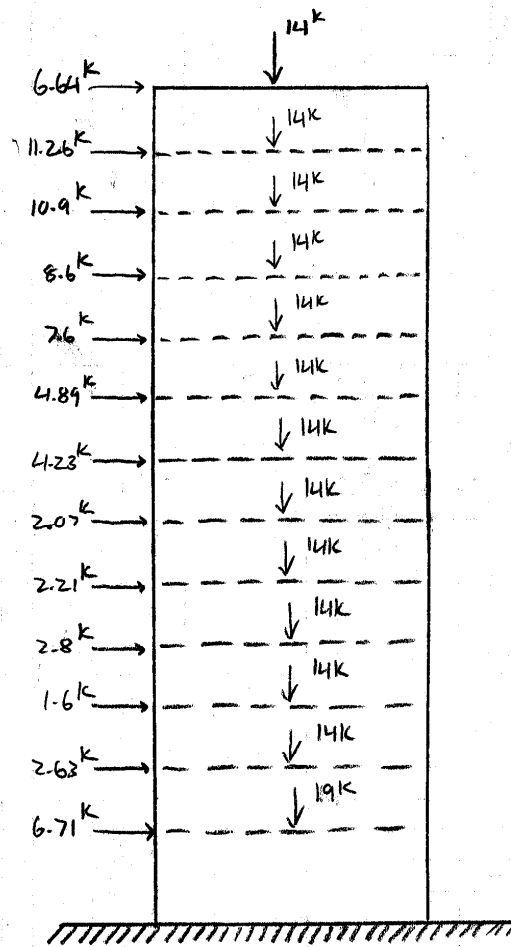 14K
6.64K
14K
11.26K
14K
10.9K
14K
8.6K
14K
7.6K
14K
4.89K
14K
4.23K
14K
2.07K
14K
2.21K
14K
2.8K
14K
1.6K
14K
2.63K
19K
6.71K